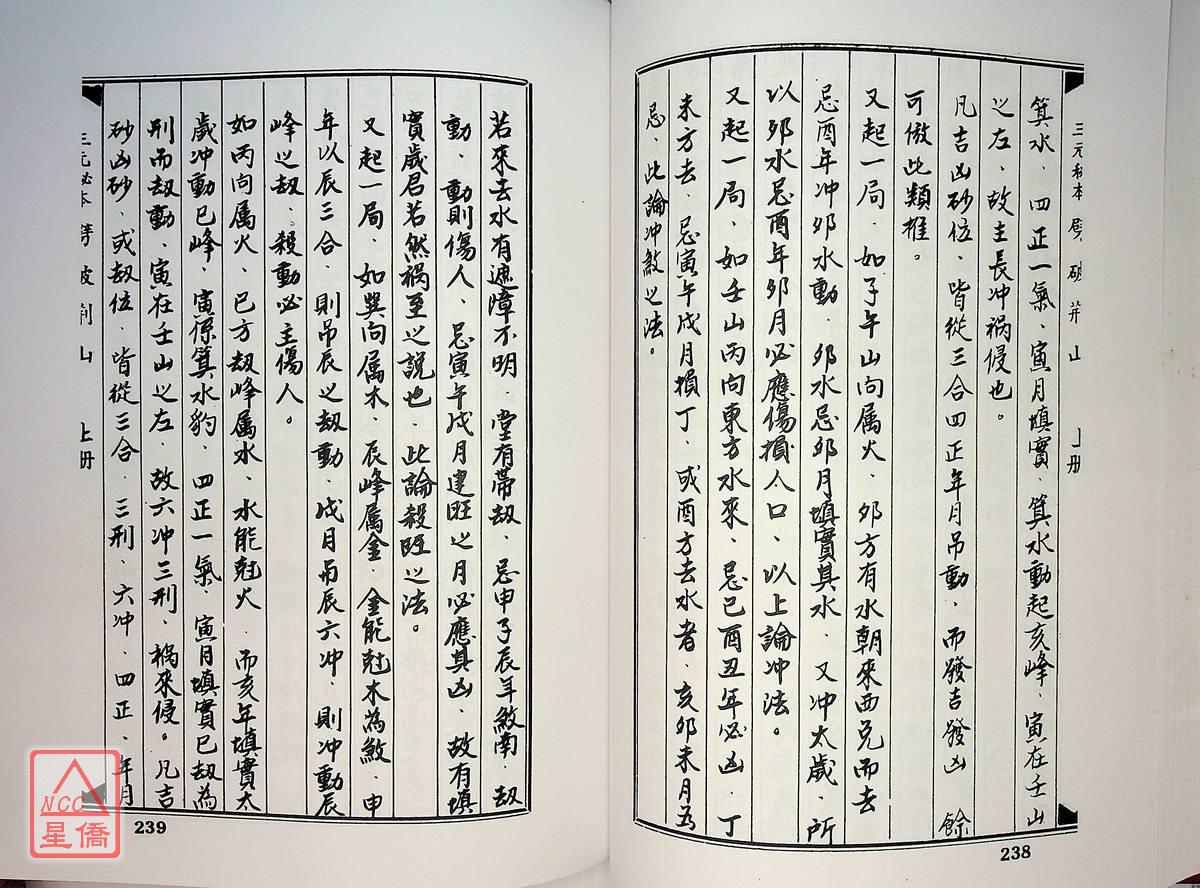 三元秘本 劈破荓山 上册
箕水、四正一氣、寅月填實、箕水動起亥峰、寅在壬山
之左、故主長冲禍侵也。
凡吉凶砂位、皆從三合四正年月吊動、而發吉發凶 餘
可倣此類推。
又起一局、如子午山向属火、夘方有水朝來西兑而去
忌酉年冲夘水動、夘水忌夘月填實其水、又冲太歲、所
以夘水忌酉年夘月必應傷損人口、以上論冲法。
又起一局、如壬山丙向東方水來、忌巳酉丑年必凶、丁
未方去、忌寅午戌月損丁、或酉方去水者、亥夘未月為
忌、此論冲煞之法。
238
若來去水有遮障不明、堂有帶刼、忌申子辰年煞南、刼
動、動則傷人、忌寅午戌月建旺之月必應其凶、故有填
實歲君若然禍至之説也、此論殺旺之法。
又起一局、如巽向属木、辰峰属金、金能尅木為煞、申
年以辰三合、則吊辰之刼動、戌月而辰六冲、則冲動辰
峰之刼、殺動必主傷人。
如丙向属火、巳方刼峰属水、水能尅火、而亥年填實太
歲冲動巳峰、寅係箕水豹、四正一氣、寅月填實巳刼為
刑而刼動、寅在壬山之左、故六冲三刑、禍來侵。凡吉
砂凶砂、或刼位、皆從三合、三刑、六冲、四正、年月
三元秘本 劈破荓山 上册
239
NCC
星僑